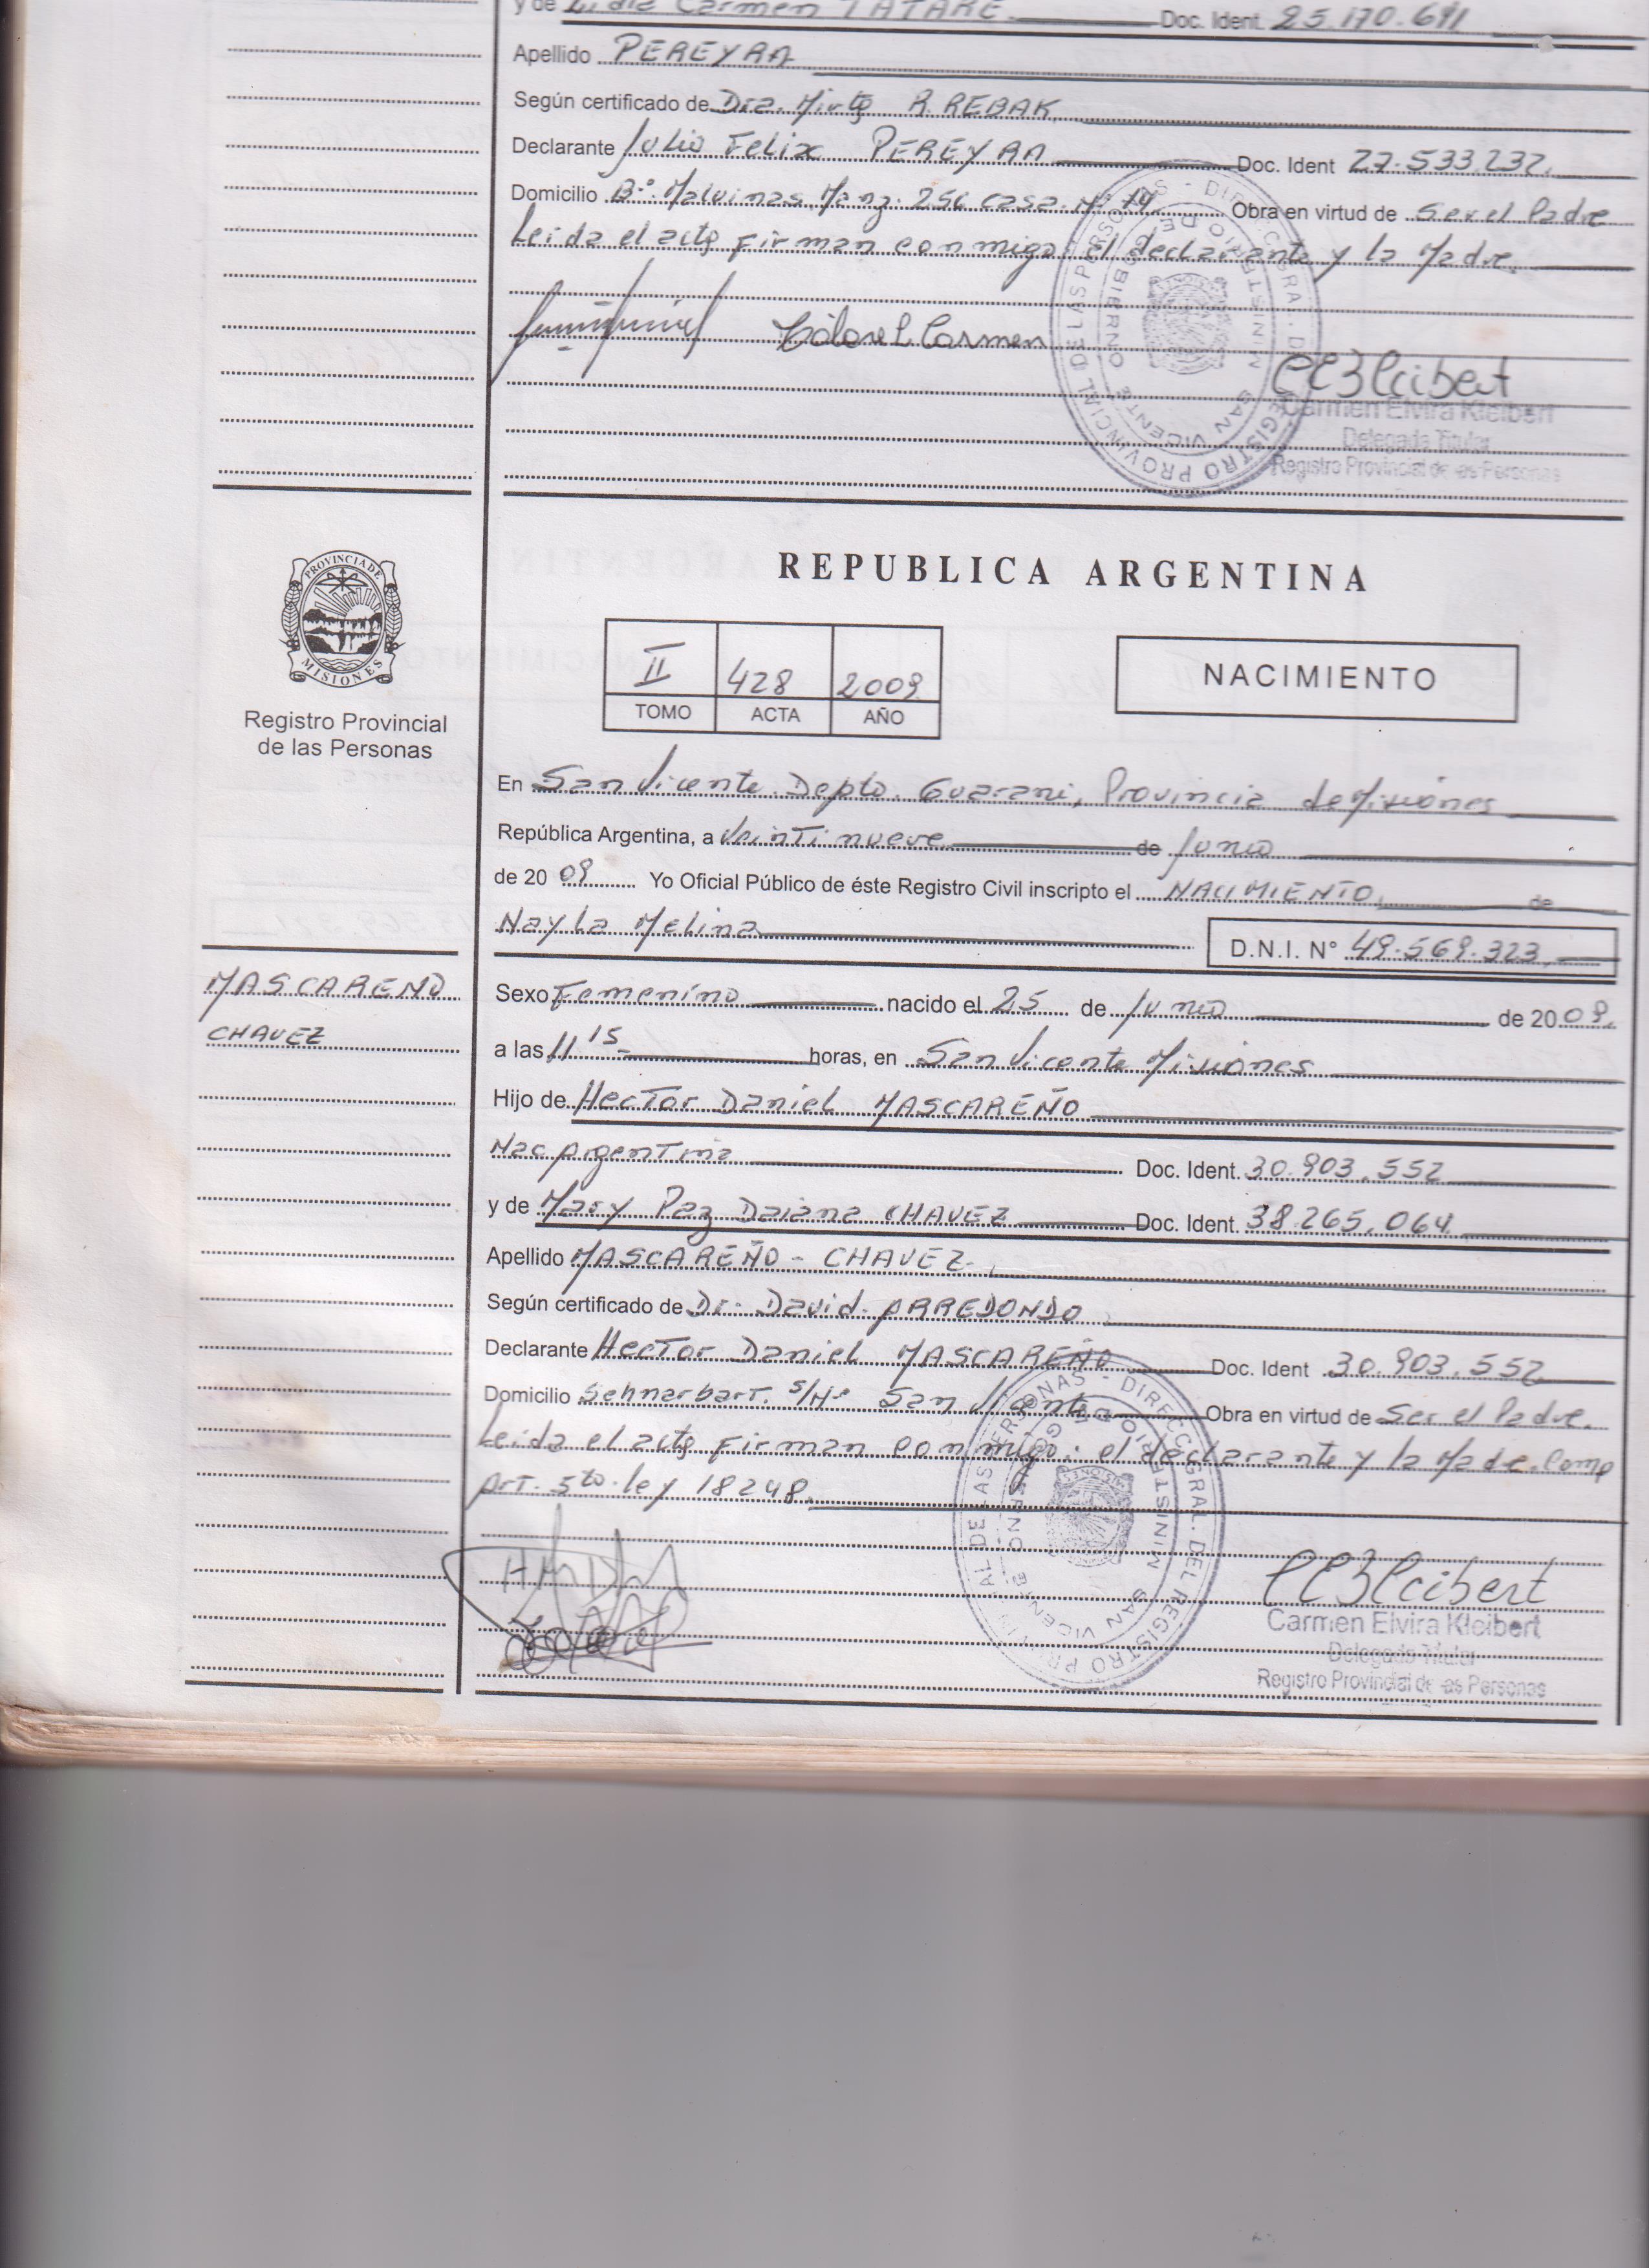 y de Lidia Carmen TATARE Doc. Ident. 25.170.691
Apellido PEREYRA
Según certificado de Dra. Mirta R. REBAK
Declarante Julio Felix PEREYRA Doc. Ident 27.533.232.
Domicilio B.º Malvinas Manz. 256 casa Nº 14 Obra en virtud de Ser el Padre
Leida el acta Firman conmigo: el declarante y la Madre.
Carmen
CEKleibert
Carmen Elvira Kleibert
Delegada Titular
Registro Provincial de las Personas
REGISTRO PROVINCIAL DE LAS PERSONAS - DIRECC. GRAL. DEL
MINISTERIO DE GOBIERNO
SAN VICENTE
PROVINCIA DE
MISIONES
Registro Provincial
de las Personas
REPUBLICA ARGENTINA
II 428 2009
TOMO ACTA AÑO
NACIMIENTO
En San Vicente Depto. Guarani, Provincia de Misiones
República Argentina, a veintinueve de Junio
de 2009 Yo Oficial Público de éste Registro Civil inscripto el NACIMIENTO de
Nayla Melina D.N.I. N° 49.569.323
MASCAREÑO
CHAVEZ
Sexo Femenino nacido el 25 de Junio de 2009.
a las 11 15 horas, en San Vicente Misiones
Hijo de Hector Daniel MASCAREÑO
Nac Argentina Doc. Ident. 30.903.552
y de Mary Paz Daiana CHAVEZ Doc. Ident. 38.265.064
Apellido MASCAREÑO - CHAVEZ.
Según certificado de Dr. David ARREDONDO
Declarante Hector Daniel MASCAREÑO Doc. Ident 30.903.552
Domicilio Sehnarbart. S/Nº San Vicente Obra en virtud de Ser el Padre.
Leida el acta Firman conmigo: el declarante y la Madre. Comp
Art. 5to. ley 18248.
CEKleibert
Carmen Elvira Kleibert
Delegada Titular
Registro Provincial de las Personas
REGISTRO PROVINCIAL DE LAS PERSONAS - DIRECC. GRAL. DEL
MINISTERIO DE GOBIERNO
SAN VICENTE